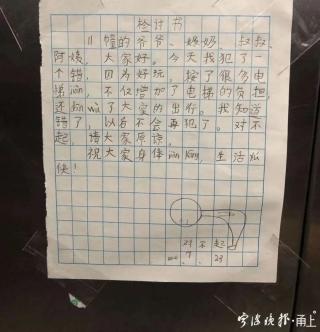 检讨书
11幢的爷爷、奶奶、叔叔、
阿姨，大家好。今天我犯了一
个错，因为好玩，按了很多电
梯，不仅增加了电梯的负担，
还 wù了大家的出行。我知道
错了，以后不会再犯了。对不
起，请大家原谅。
祝大家身体 kāng，生活愉
快！
对不起
7. 23
宁波晚报·甬上